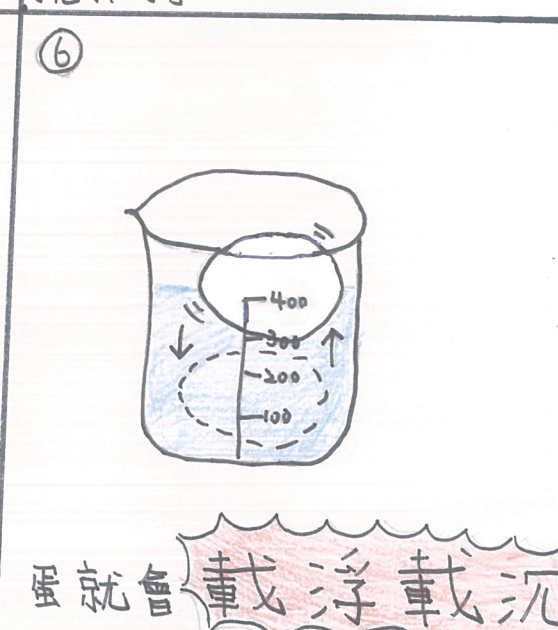 ⑥
400
300
200
100
蛋就會載浮載沉